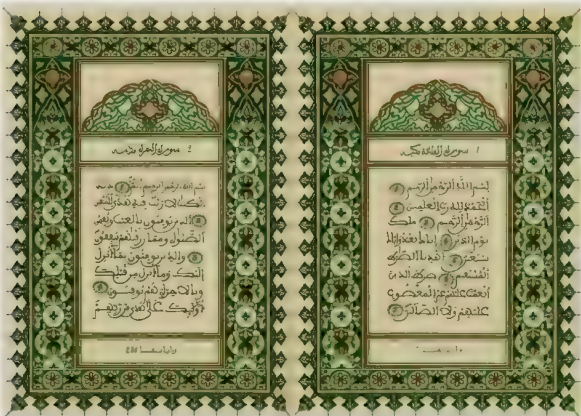 سورة الفاتحة مكية
بسم الله الرحمن الرحيم
الحمد لله رب العلمين
الرحمن الرحيم ملك
يوم الدين إياك نعبد وإياك
نستعين اهدنا الصراط
المستقيم صراط الذين
أنعمت عليهم غير المغضوب
عليهم ولا الضالين
سورة البقرة مدنية
بسم الله الرحمن الرحيم ألم
الكتب لا ريب فيه هدى للمتقين
الذين يومنون بالغيب ويقيمون
الصلوة ومما رزقنهم ينفقون
والذين يومنون بما أنزل
إليك وما أنزل من قبلك
وبالآخرة هم يوقنون
أولئك على هدى من ربهم